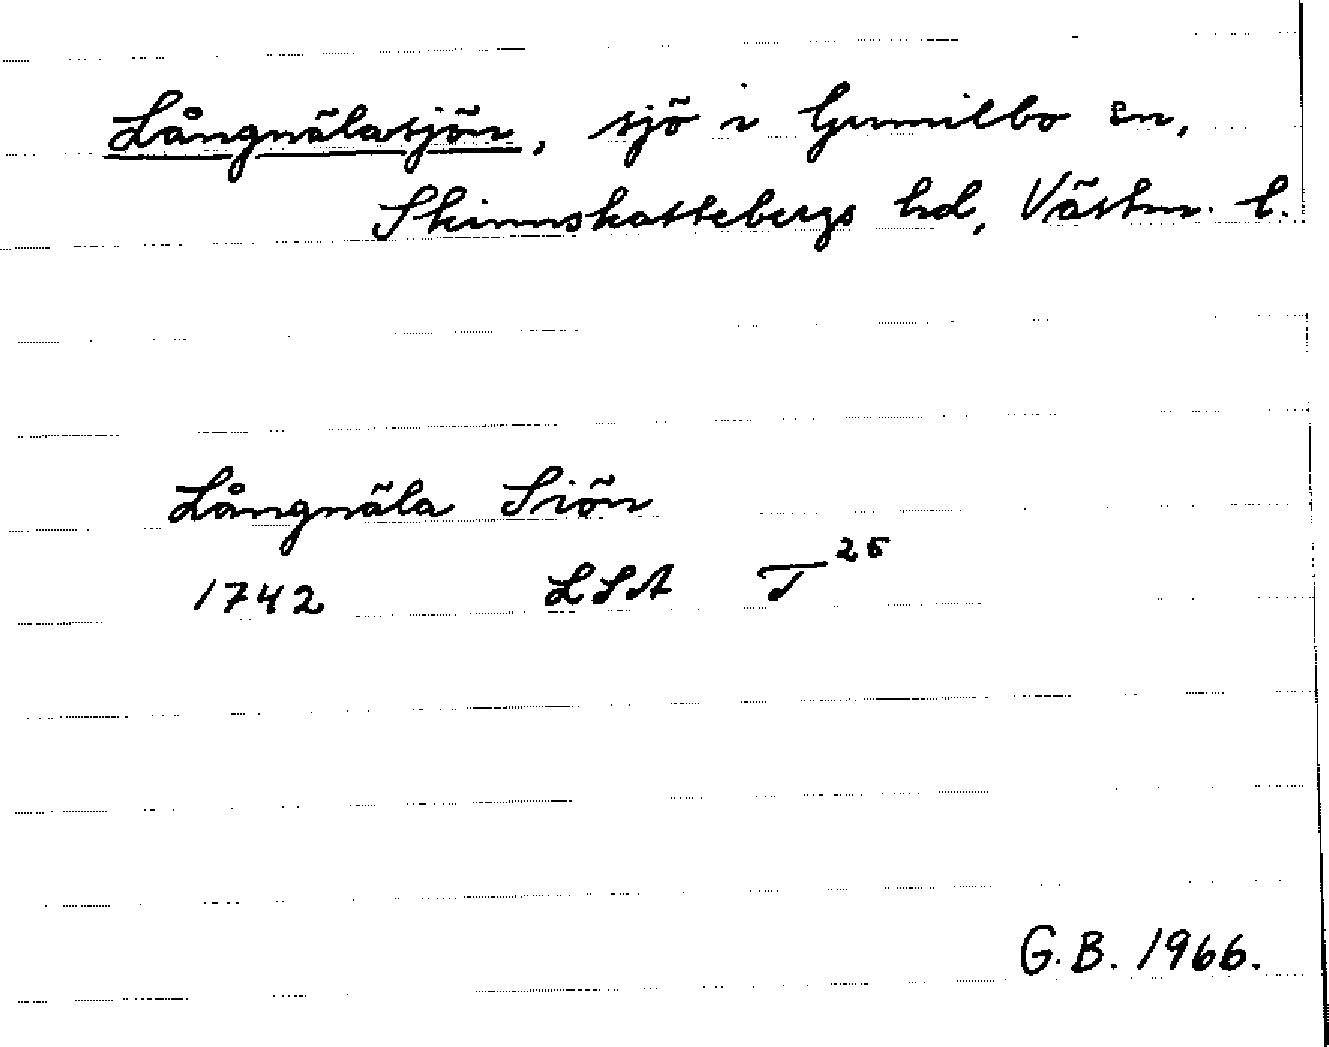 Långnälasjön, sjö i Gunnilbo sn,
Skinnskattebergs hd, Västm. l.
Långnäla Siön
1742 LSA T 25
G.B. 1966.